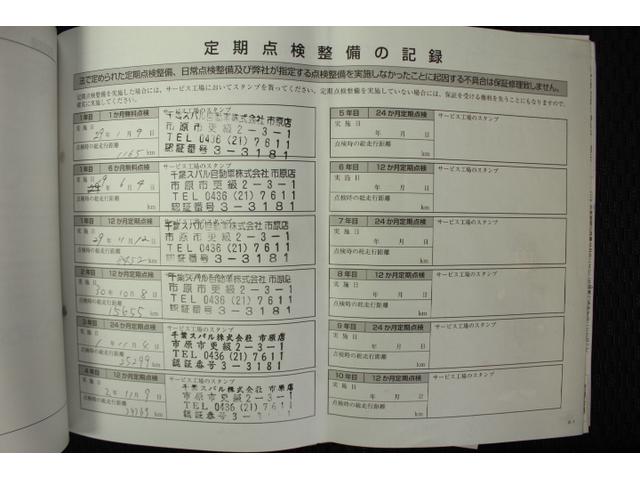 定期点検整備の記録
法で定められた定期点検整備、日常点検整備及び弊社が指定する点検整備を実施しなかったことに起因する不具合は保証修理致しません。
定期点検整備を実施した場合には、サービス工場においてスタンプを貰ってください。定期点検整備を実施していない場合には、保証を受ける権利を失うことにもなりますので、
確実に実施してください。
1年目 1か月無料点検 サービス工場のスタンプ
実施日
29年1月9日
点検時の総走行距離
1165 km
千葉スバル自動車株式会社 市原店
市原市更級2-3-1
TEL 0436 (21) 7611
認証番号 3-3181
1年目 6か月無料点検 サービス工場のスタンプ
年6月4日
点検時の総走行距離
km
千葉スバル自動車株式会社 市原店
市原市更級2-3-1
TEL 0436 (21) 7611
認証番号 3-3181
1年目 12か月定期点検 サービス工場のスタンプ
実施日
29年11月12日
点検時の総走行距離
km
千葉スバル自動車株式会社 市原店
市原市更級2-3-1
TEL 0436 (21) 7611
認証番号 3-3181
2年目 12か月定期点検
実施日
30年10月8日
点検時の総走行距離
15655 km
千葉スバル自動車株式会社 市原店
市原市更級2-3-1
TEL 0436 (21) 7611
認証番号 3-3181
3年目 24か月定期点検 サービス工場のスタンプ
実施日
1年11月8日
点検時の総走行距離
25299 km
千葉スバル株式会社 市原店
市原市更級2-3-1
TEL 0436 (21) 7611
認証番号 3-3181
4年目 12か月定期点検 サービス工場のスタンプ
実施日
2年11月9日
点検時の総走行距離
km
千葉スバル株式会社 市原店
市原市更級2-3-1
TEL 0436 (21) 7611
認証番号 3-3181
5年目 24か月定期点検 サービス工場のスタンプ
実施日
年 月 日
点検時の総走行距離
km
6年目 12か月定期点検 サービス工場のスタンプ
実施日
年 月 日
点検時の総走行距離
km
7年目 24か月定期点検 サービス工場のスタンプ
実施日
年 月 日
点検時の総走行距離
km
8年目 12か月定期点検 サービス工場のスタンプ
実施日
年 月 日
点検時の総走行距離
km
9年目 24か月定期点検 サービス工場のスタンプ
実施日
年 月 日
点検時の総走行距離
km
10年目 12か月定期点検 サービス工場のスタンプ
実施日
年 月 日
点検時の総走行距離
km